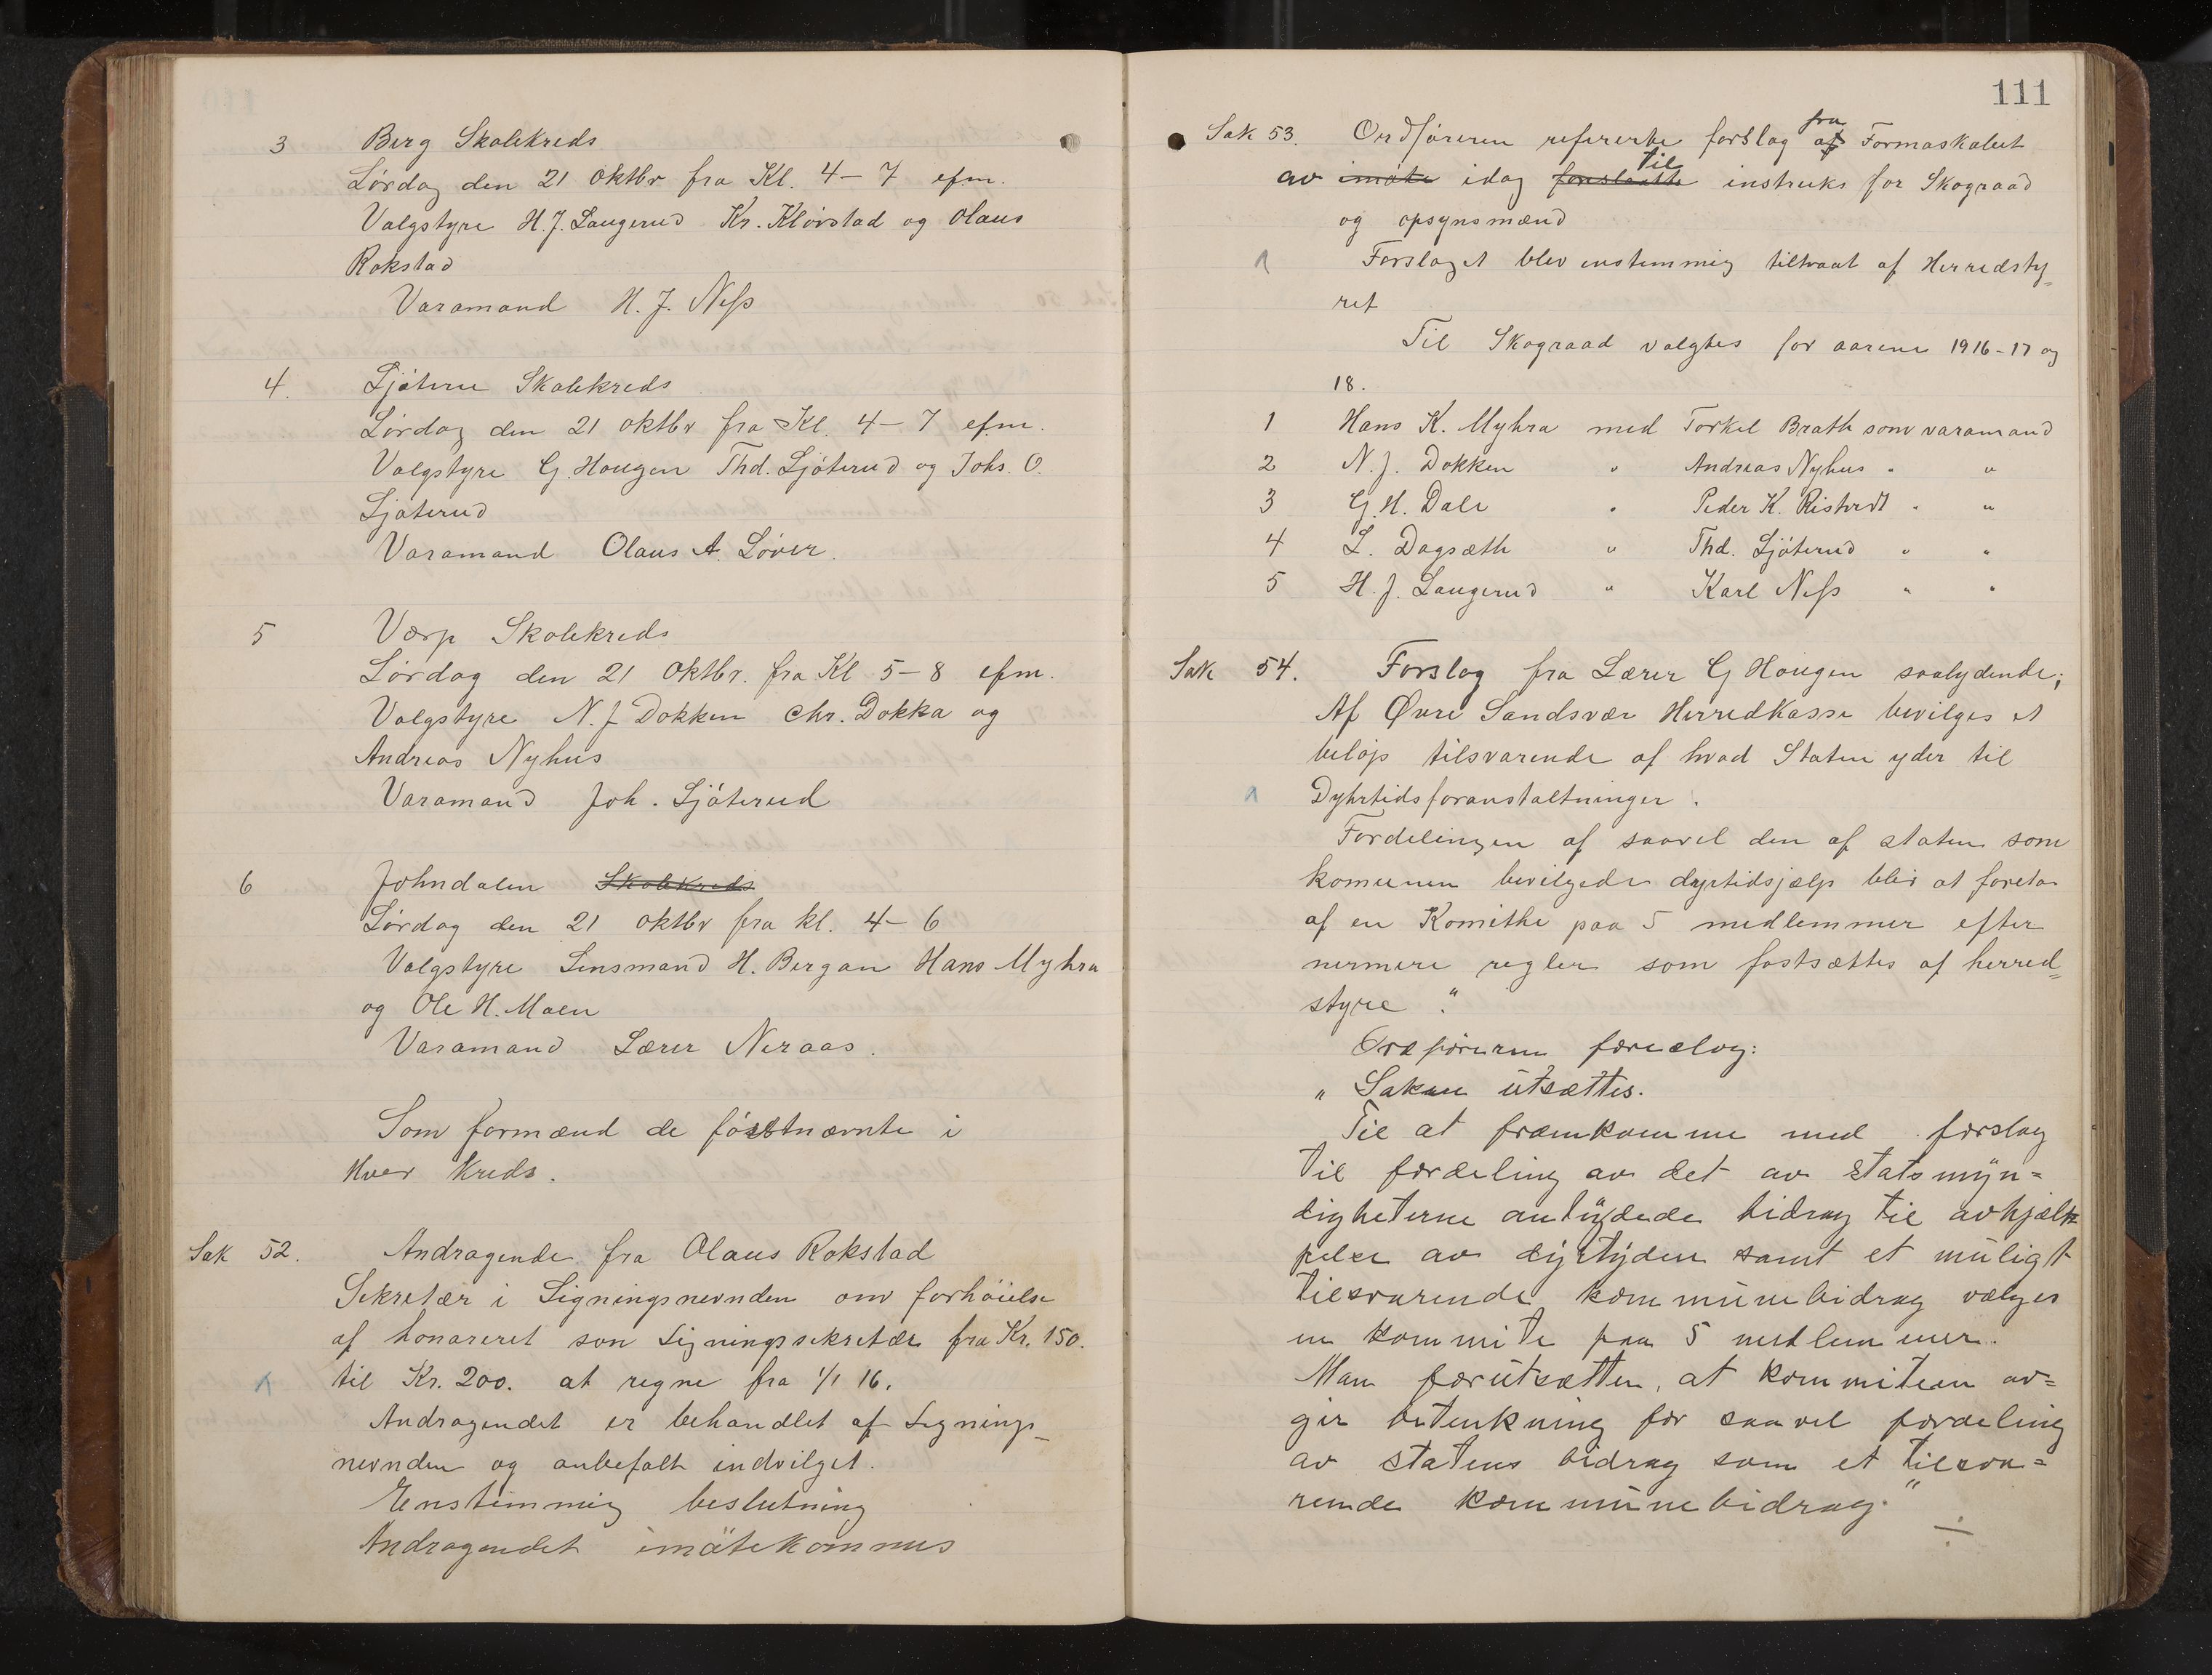 3 Berg Skolekreds
Lørdag den 21 Oktbr fra Kl. 4–7 efm.
Valgstyre H.J. Laugerud Kr. Kløvstad og Olaus
Rokstad
Varamand H. J. Ness
4. Ljøterue Skolekreds
Lørdag den 21 Oktbr fra Kl. 4–7 efm.
Valgstyre G. Hougen Thd. Ljøterud og Johs. O.
Ljøterud
Varamand Olaus A. Løver.
5 Værp Skolekreds
Lørdag den 21 Oktbr. fra Kl 5–8 efm.
Valgstyre N.J Dokken Chr. Dokka og
Andreas Nyhus
Varamand Joh. Ljøterud
6 Johndalen Skolekreds
Lørdag den 21 Oktbr fra kl. 4–6
Valgstyre Lensmand H. Bergan Hans Myhra
og Ole H. Moen
Varamand Lærer Neraas.
Som formænd de førstnævnte i
Hver Kreds.
Sak 52. Andragende fra Olaus Rokstad
Sekretær i Ligningsnevnden om forhöielse
af honoreret som Ligningssekretær fra Kr. 150.
til Kr. 200. at regne fra 1/1 16.
Andragendet er behandlet af Lignings-
nevnden og anbefalt indvilget.
Enstimmig beslutning
Andragendet imøtekommes
111
Sak 53. Ordføreren refererte forslag af fra Formaskabet
av imøte idag foreslaatte til instruks for Skograad
og opsynsmænd
Forslaget blev enstemmig tiltraat af Herredsty-
ret
Til Skograad valgtes for aarene 1916-17 og
18.
1 Hans K. Myhra med Torkel Brath som varamand
2 N.J. Dokken " Andreas Nyhus " "
3 G.H. Dale " Peder K. Ristvedt " "
4 L. Dagsæth " Thd. Ljøterud " "
5 H.J. Laugerud " Karl Ness " "
Sak 54. Forslag fra Lærer G Hougen saalydende;
Af Øvre Sandsvær Herredkasse bevilges et
beløp tilsvarende af hvad Staten yder til
Dyhrtidsforanstaltninger.
Fordelingen af saavel den af staten som
komunen bevilgede dyrtidsjælp blir at foreta
af en Komithe paa 5 medlemmer efter
nermere regler som fastsættes af herred=
styre."
Ordføreren foreslog:
" Saken utsættes.
Til at fræmkomme med forslag
til fordeling av det av statsmyn=
digheterne antydede bidrag til avhjælp
pelse av dyrtyden samt et muligt
tilsvarende kommunebidrag vælges
en kommite paa 5 medlemmer.
Man forutsætter, at kommiteen av=
gir betenkning for saavel fordeling
av statens bidrag som et tilsva=
rende kommunebidrag."